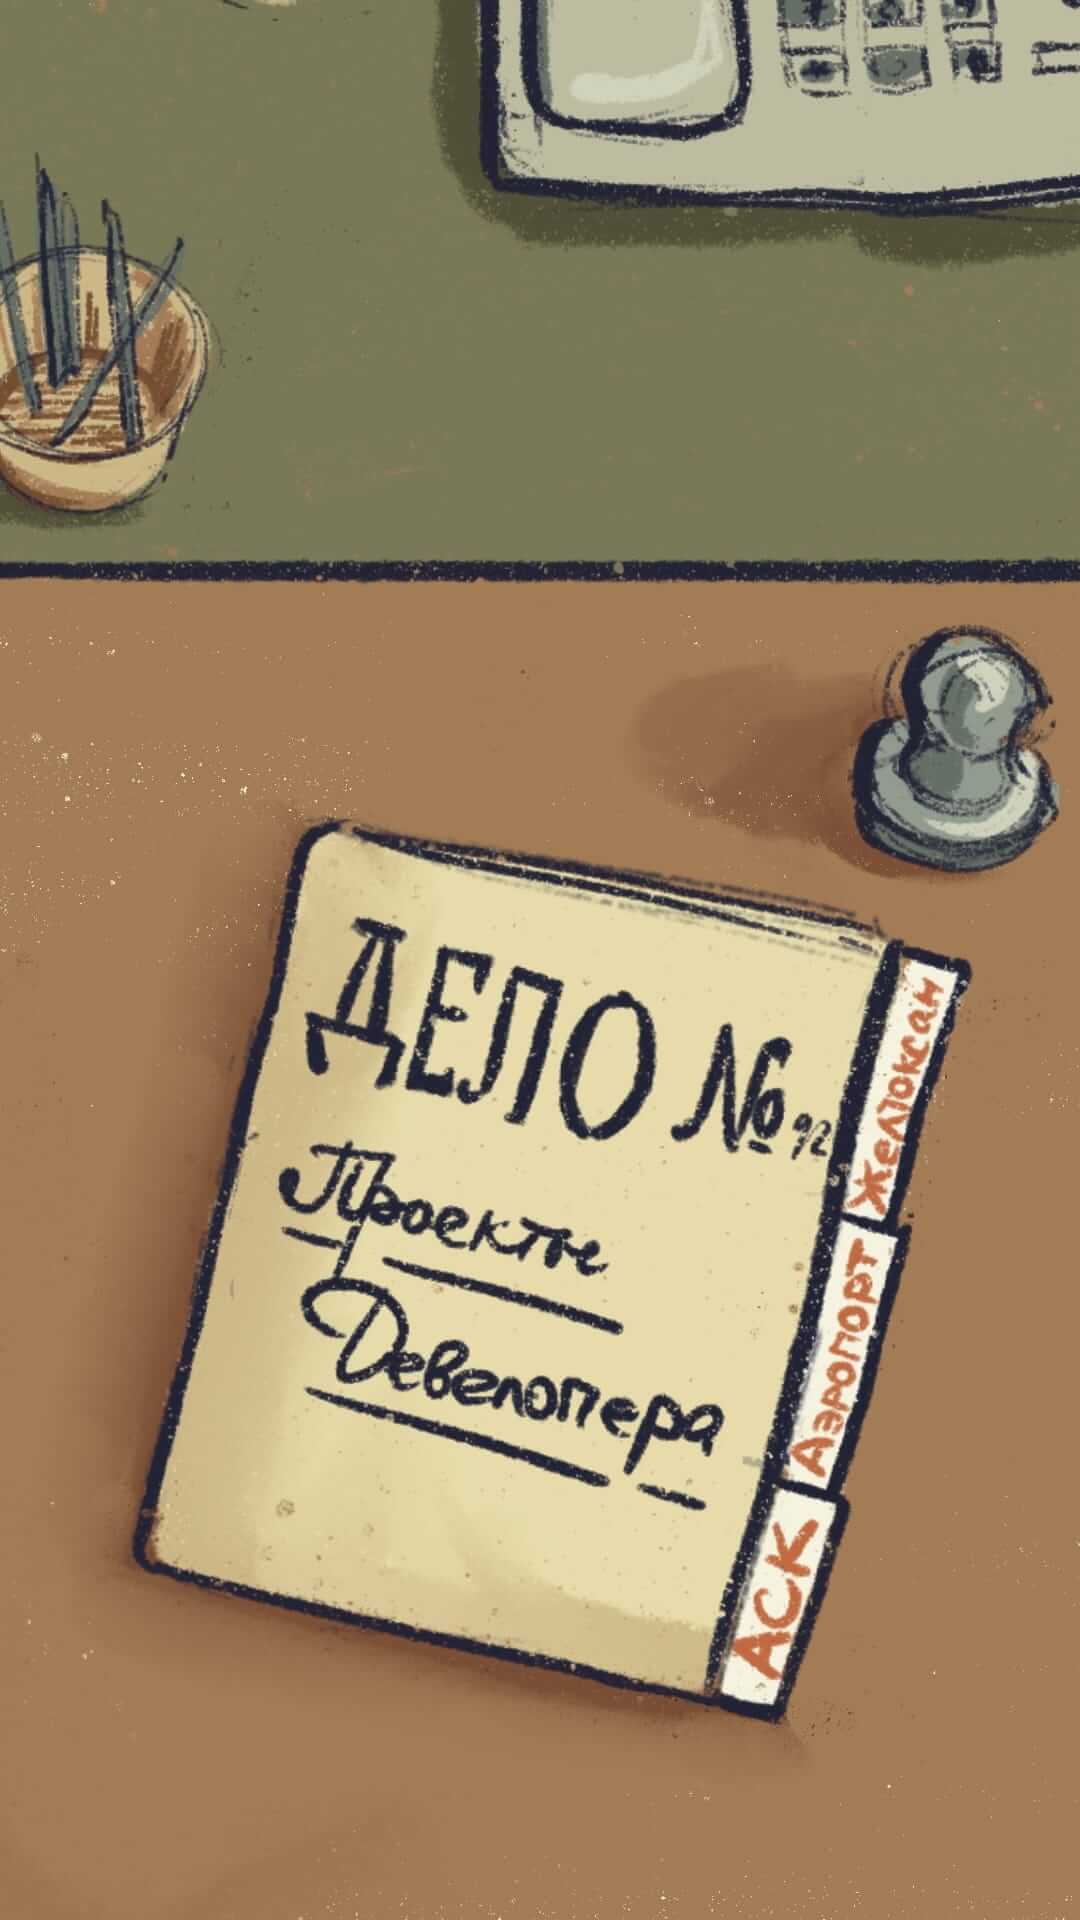 ДЕЛО №92
Проекты
Девелопера
Желтоксан
Аэропорт
АСК